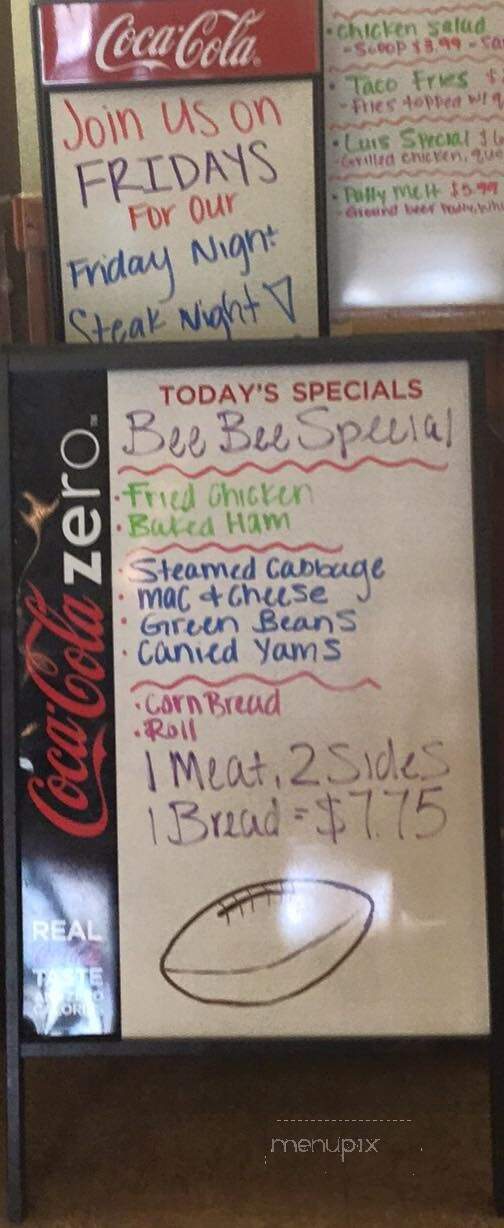 Coca-Cola
Join us on
FRIDAYS
For Our
Friday Night
Steak Night
chicken salad
- Scoop $3.99 -
Taco Fries
- Fries topped w/
Luis Special
- Grilled chicken,
Patty Melt $5.99
- Ground beef Patty,
TODAY'S SPECIALS
Bee Bee Special
• Fried Chicken
• Baked Ham
• Steamed Cabbage
• Mac & Cheese
• Green Beans
• Canied Yams
• Corn Bread
• Roll
1 Meat, 2 Sides
1 Bread = $7.75
Coca-Cola zero™
REAL
TASTE
menupix